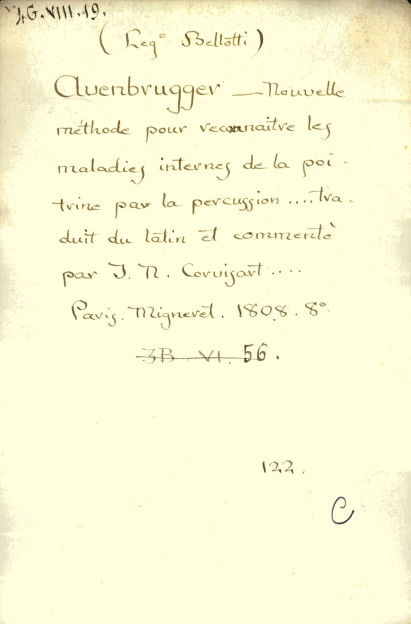 4G.VIII.19.
(Leg.º Bellotti)
Auenbrugger — Nouvelle
méthode pour reconnaitre les
maladies internes de la poi-
trine par la percussion .... tra-
duit du latin et commenté
par J. N. Corvisart ....
Paris. Migneret. 1808. 8º.
3B VI. 56.
122.
C